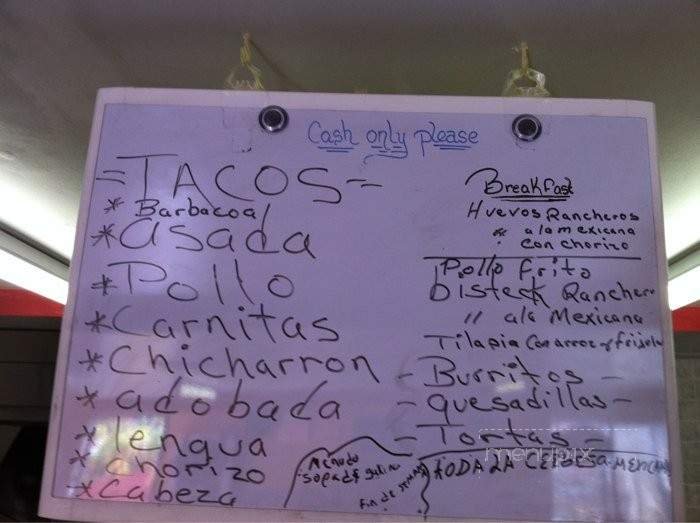 Cash only please
=TACOS=
* Barbacoa
* asada
* Pollo
* Carnitas
* Chicharron
* adobada
* lengua
* Chorizo
* Cabeza
Breakfast
Huevos Rancheros
" a la mexicana
" con chorizo
Pollo frito
bisteck Ranchero
" ala Mexicana
Tilapia con arroz y frijoles
- Burritos -
- quesadillas -
- Tortas -
Menudo
sopa de
Fin de semana
menupix